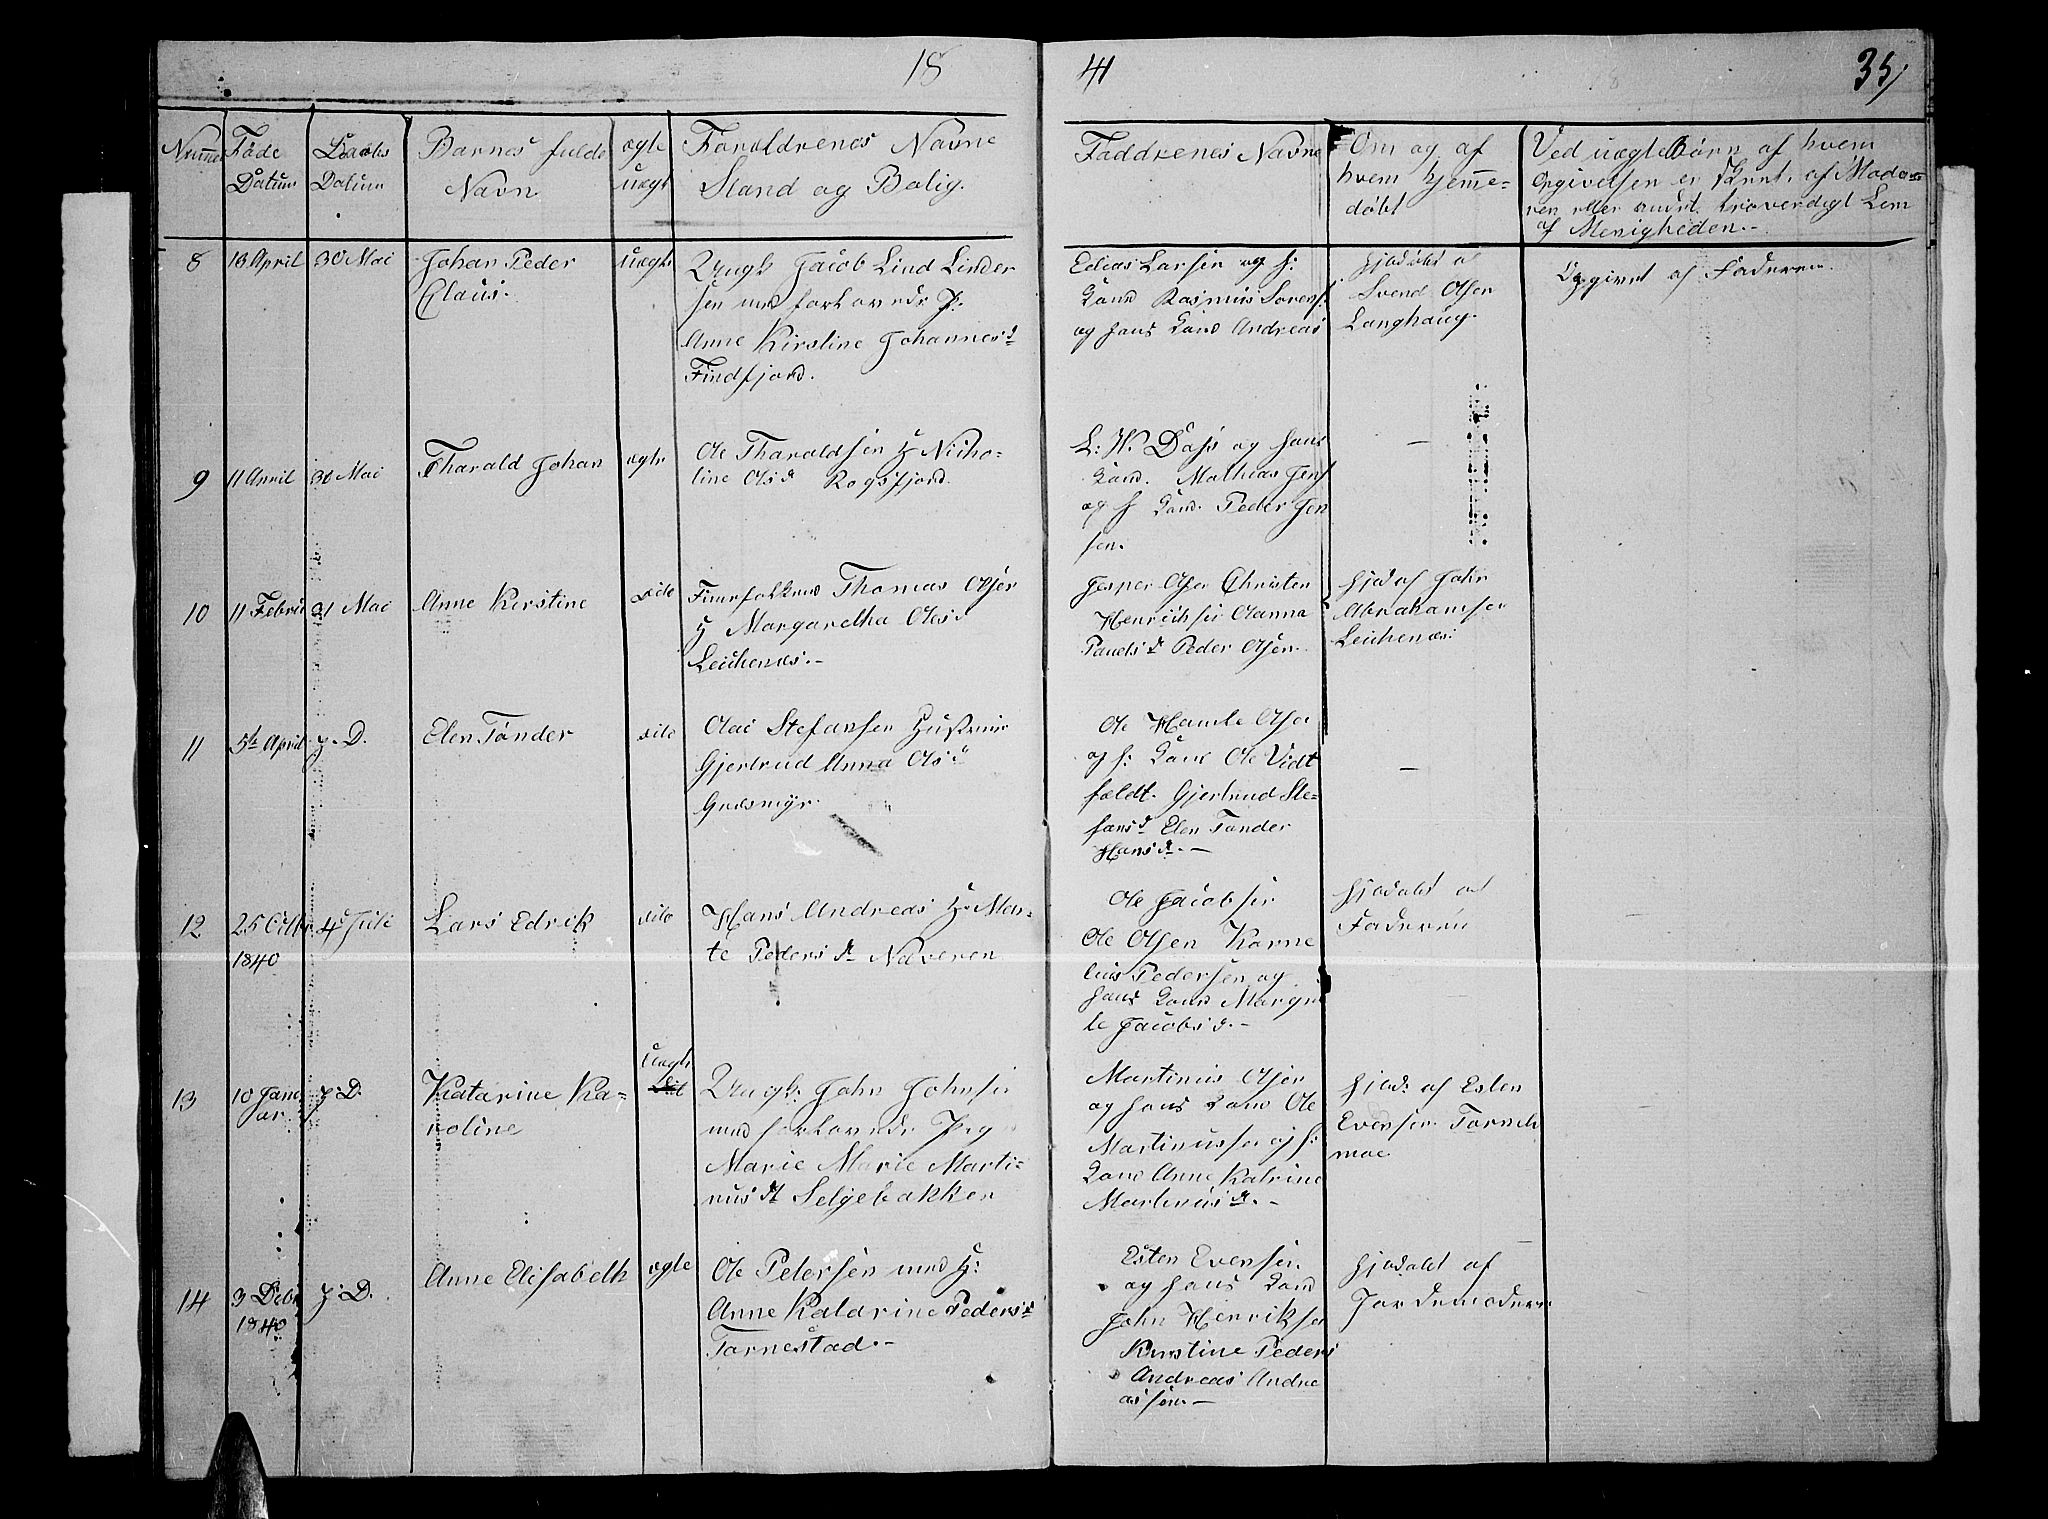 18 41 35
Numer Føde Datum Daabs Datum Barnes fulde Navn ægte uægt Forældrenes Navne Stand og Bolig.
Faddrenes Navne Om og af hvem hjemedøbt Ved uægte Børn af hvem
Opgivelsen er skeet. af Mode-
ren eller andet troverdigt Lem
af Menigheden.-
8 18 April 30 Mai Johan Peder uægte Ungk Jacob Lind Linder
Claus. sen med forlovede P:
Anne Kirstine Johannesd
Findfjord.
Edias Larsen og h:
Kone Rasmus Sørens:
og hans Kone Andreas
hjedøbt af
Svend Olsen
Langhaug.
Opgivet af Faderen.
9 11 April 30 Mai Tharald Johan ægte Ole Tharaldsen H Nicho-
line Olsd Rogsfjord.
L: W. Dass og hans
Kone. Mathias Jens
og h Kone. Peder Jen
sen.
-
10 11 Febru 31 Mai Anne Kirstine dito Finnfolkene Thomas Olsen
H Margaretha Olesd
Leichenæs.-
Jesper Olsen Christen
Henrichsen Oanna
Pauelsd Peder Olsen.
hjed af John
Abrahamsen
Leichenæs:
11 5te April s. D. Elen Tønder dito Olai Stefansen Hustrue
Gjertrud Anna Olsd
Græsmyr.
Ole Hamle Olsen
og h: Kone Ole Vidt
fældt. Gjertrud Ste-
fansd Elen Tønder
Hansd.-
-
12 25 Octbr 4 Juli Lars Edrik dito Hans Andreas H: Mar-
1840 te Pedersd Næveren
Ole Jacobsen
Ole Olsen Karne
lius Pedersen og
hans Kone Margre
te Jacobsd.-
hjedøbt af
Faderen
13 10 Janu s: D. Katarine Ka- uægte Ungk: John Johnsen
ar. roline med forlovede Pig
Marie Marie Marti-
nusd Selgebakken
Martinus Olsen
og hans Kone Ole
Martinussen og h:
Kone Anne Katrine
Martinusd.-
hjed: af Esten
Evensen Tarneh
moe
14 3 Debr s: D. Anne Elisabeth ægte Ole Petersen med H:
1840 Anne Katarine Pedersd
Tarnestad.-
Esten Evensen.
og hans Kone
John Henriksen
Kirstine Peders
Andreas Andre
assen.-
hjedøbt af
Jordemoderen